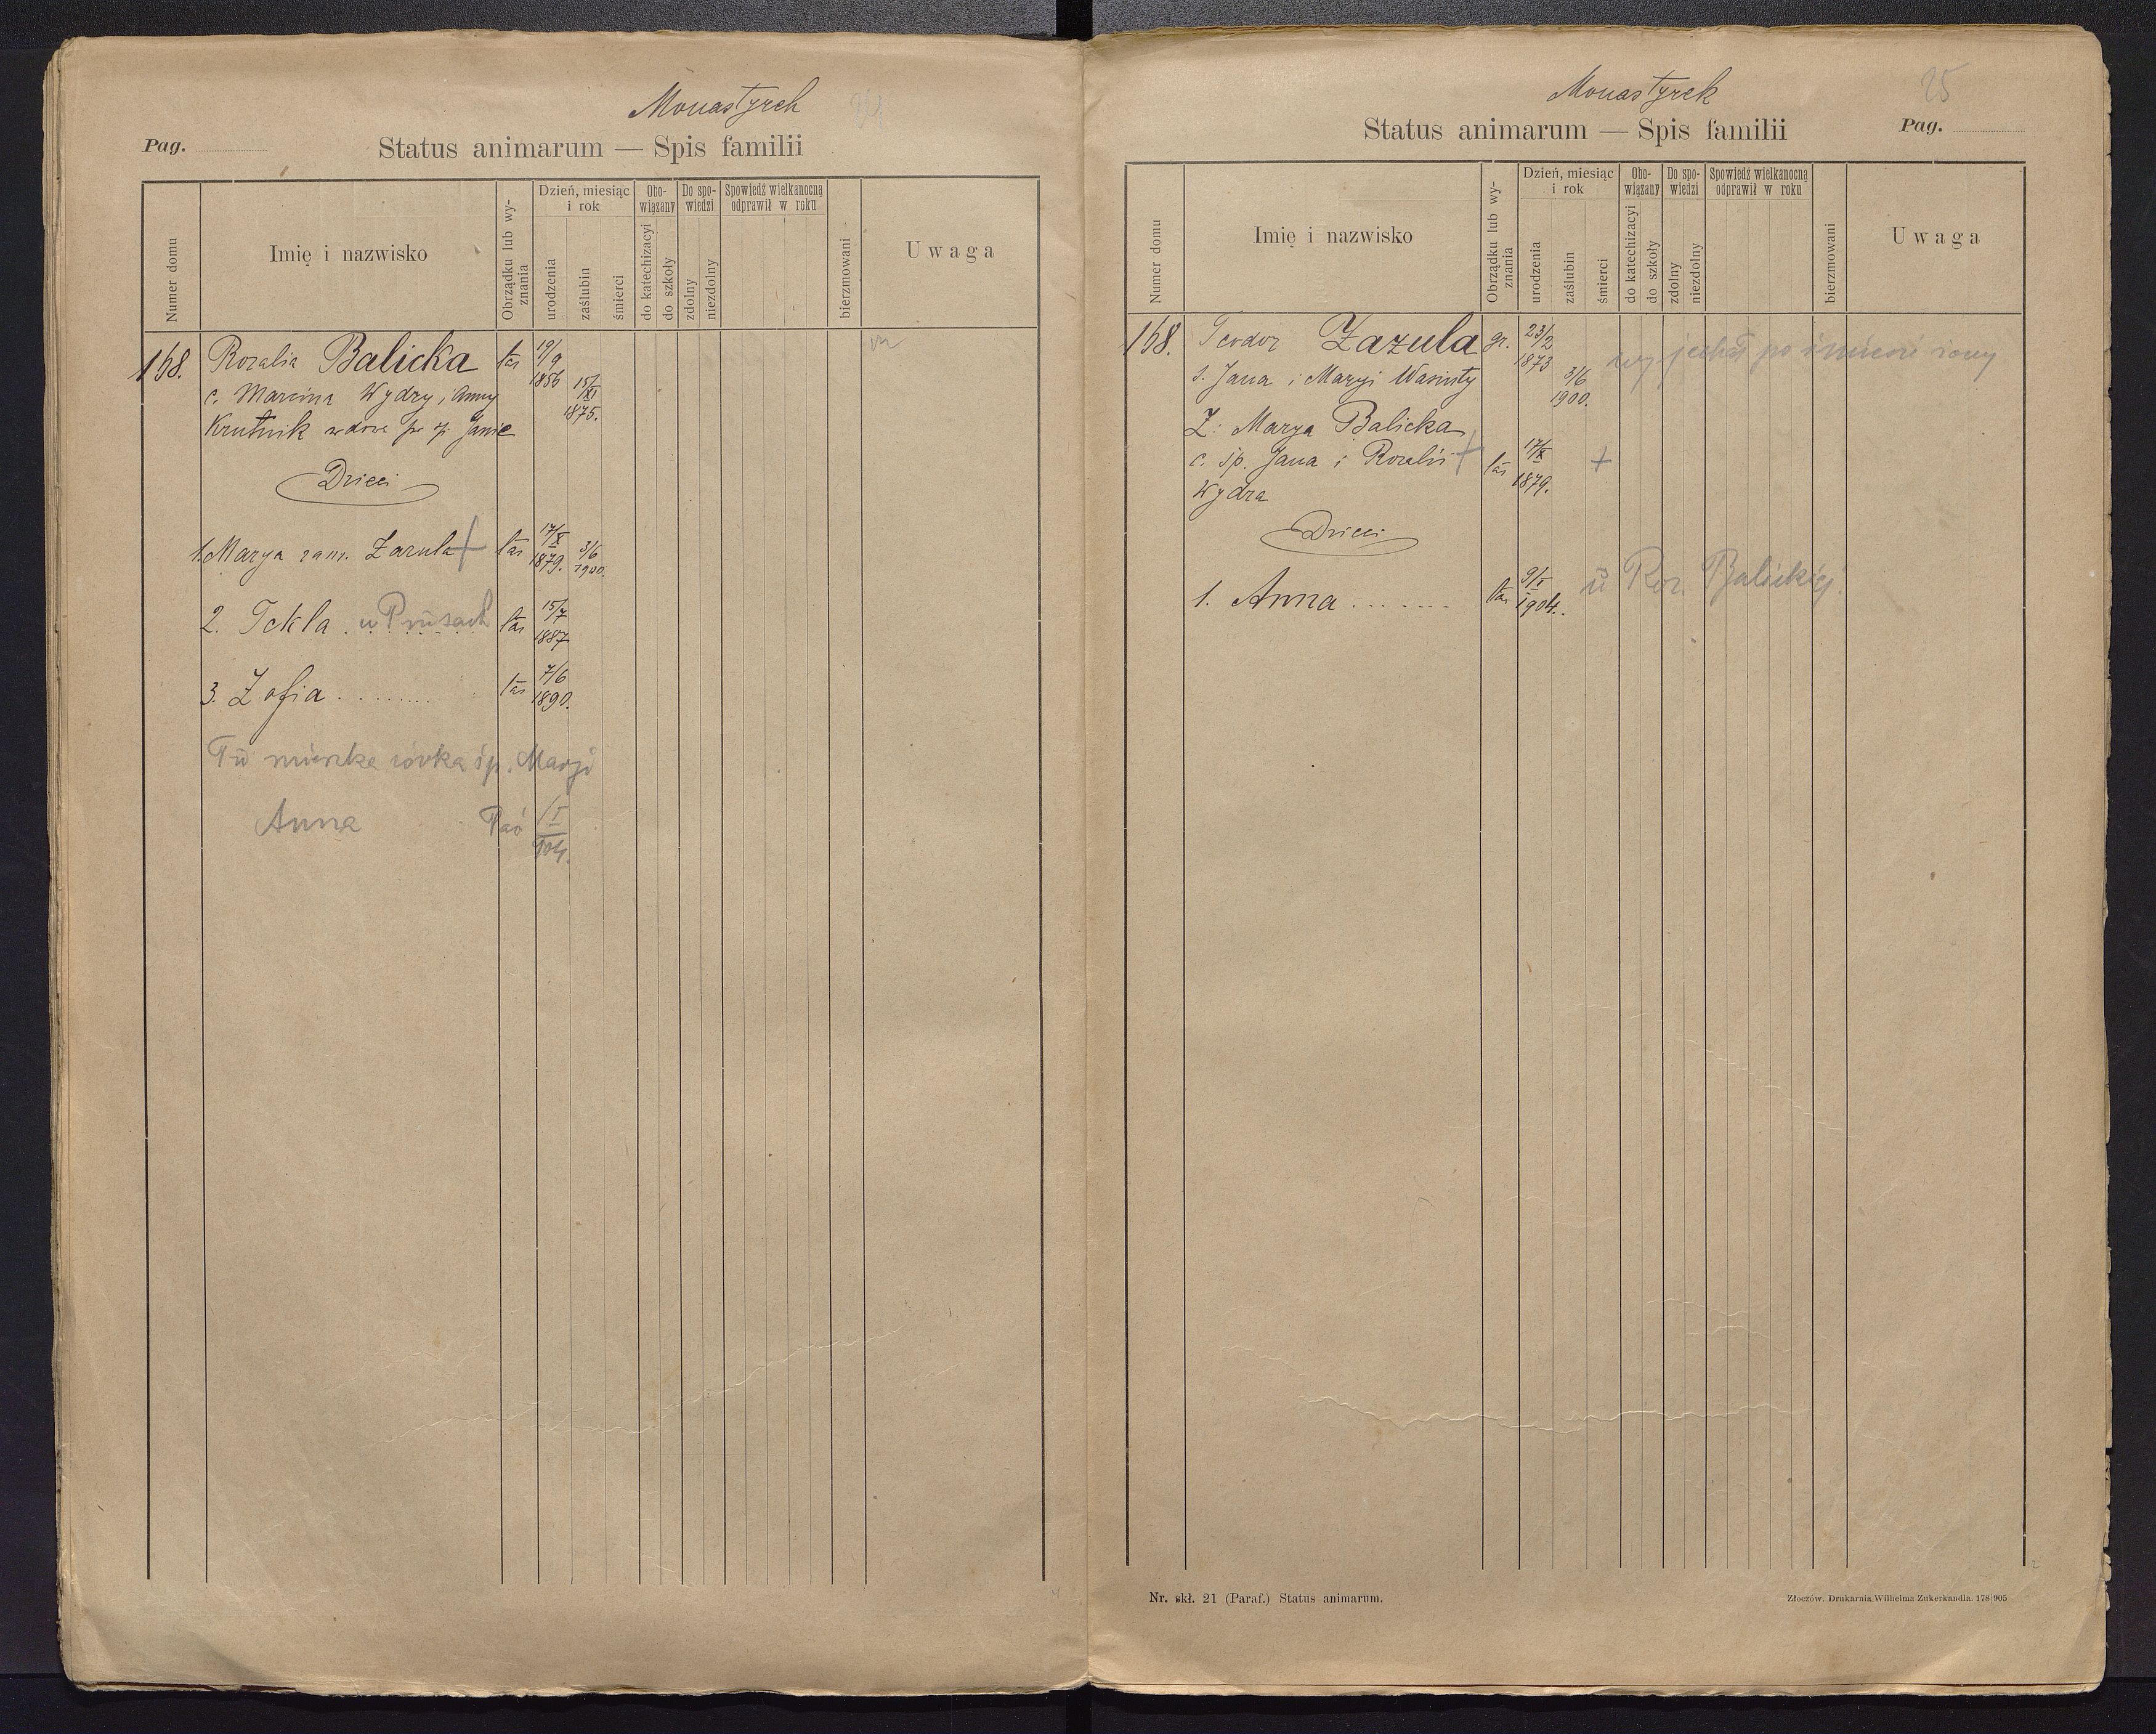 Monastyrek
Pag.
Status animarum — Spis familii
Numer domu
Imię i nazwisko
Obrządku lub wyznania
Dzień, miesiąc i rok
urodzenia
zaślubin
śmierci
Obowiązany
do katechizacyi
do szkoły
Do spowiedzi
zdolny
niezdolny
Spowiedź wielkanocną odprawił w roku
bierzmowani
Uwaga
168. Rozalia Balicka łać 19/9 1856
c. Marcina Wydry i Anny 15/XI 1875.
Krutnik wdowa po śp. Janie
Dzieci
1. Marya zam. Zazula + łać 17/X 1879. 3/6 1900.
2. Tekla . u Prusach łać 15/7 1887
3. Zofia . . . . . . . . łać 7/6 1890.
Tu mieszka córka śp. Maryi
Anna /I 904.
Monastyrek
25
Status animarum — Spis familii
Pag.
Numer domu
Imię i nazwisko
Obrządku lub wyznania
Dzień, miesiąc i rok
urodzenia
zaślubin
śmierci
Obowiązany
do katechizacyi
do szkoły
Do spowiedzi
zdolny
niezdolny
Spowiedź wielkanocną odprawił w roku
bierzmowani
Uwaga
168. Teodor Zazula gr. 23/2 1873 wyjechał po śmierci żony
s. Jana i Maryi 3/6 1900.
Ż: Marya Balicka
c. śp. Jana i Rozalii + łać 17/X 1879. +
Wydra
Dzieci
1. Anna . . . . . . . łać 9/I 1904. u Roz. Balickiej
Nr. skł. 21 (Paraf.) Status animarum.
Złoczów. Drukarnia Wilhelma Zukerkandla. 178|905